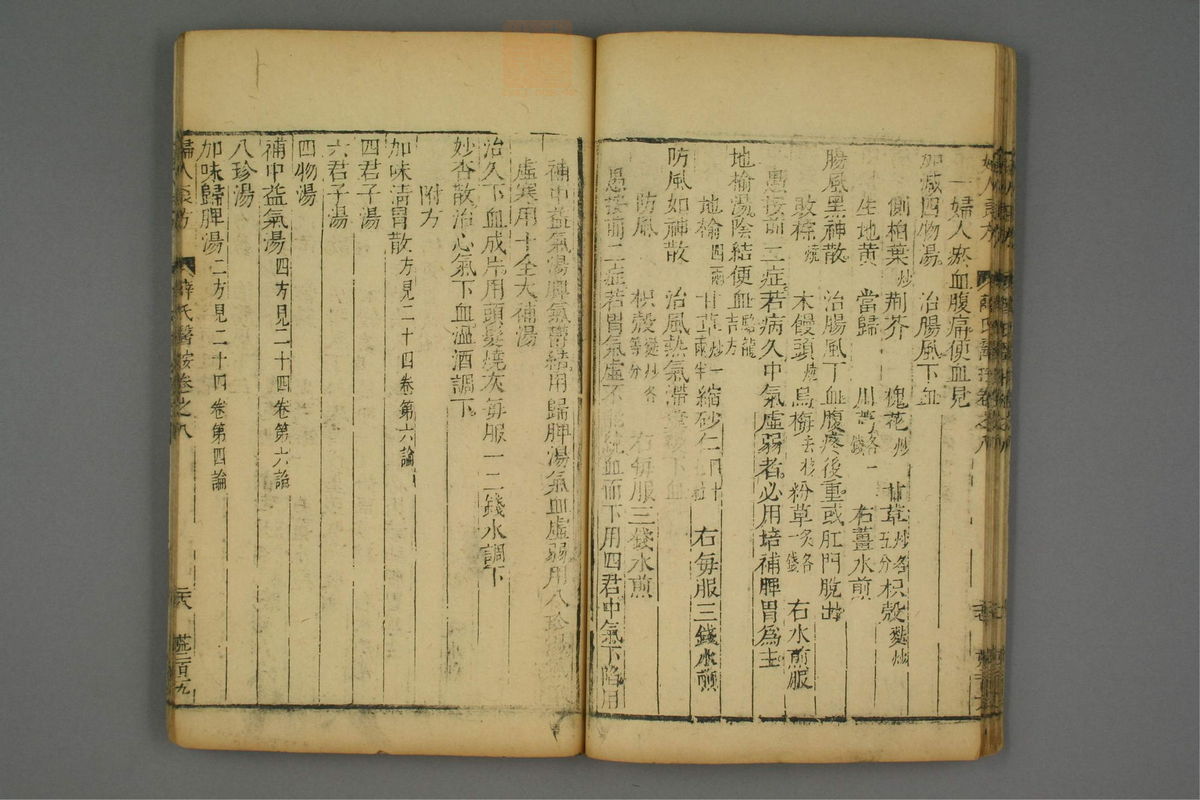 一婦人瘀血腹痛便血見
加減四物湯 治腸風下血
側柏葉炒 荊芥 槐花炒 甘草炒各五分 枳殼麩炒
生地黃 當歸 川芎各一錢 右薑水煎
腸風黑神散 治腸風下血腹疼後重或肛門脫出
敗棕燒 木饅頭燒 烏梅去核 粉草炙各一錢 右水煎服
愚按前三症若病久中氣虛弱者必用培補脾胃爲主
地榆湯 陰結便血
地榆四兩 甘草炒一兩半 縮砂仁四十 右每服三錢水煎
防風如神散 治風熱氣滯 下血
防風 枳殼麩炒各等分 右每服三錢水煎
愚按前二症若胃氣虛不能統血而下用四君中氣下陷用
補中益氣湯脾氣鬱結用歸脾湯氣血虛弱用八珍湯
虛寒用十全大補湯
治久下血成片用頭髮燒灰每服一二錢水調下
妙香散治心氣下血溫酒調下
附方
加味清胃散方見二十四卷第六論
四君子湯
六君子湯
四物湯
補中益氣湯四方見二十四卷第六論
八珍湯
加味歸脾湯二方見二十四卷第四論
婦人良方 薛氏醫按卷之八